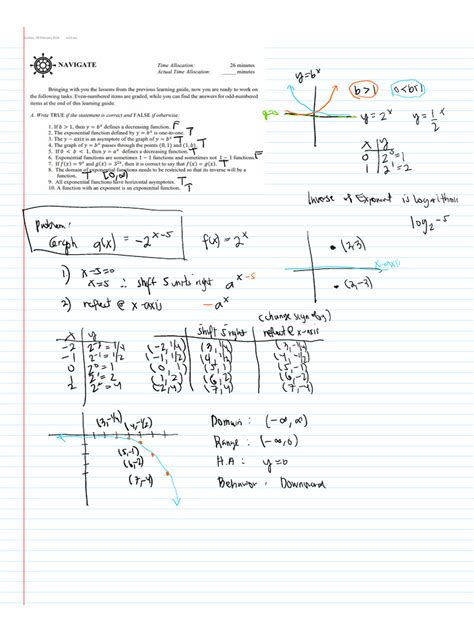 NAVIGATE
Time Allocation: 26 minutes
Actual Time Allocation: _____ minutes
Bringing with you the lessons from the previous learning guide, now you are ready to work on
the following tasks. Even-numbered items are graded, while you can find the answers for odd-numbered
items at the end of this learning guide.
A. Write TRUE if the statement is correct and FALSE if otherwise:
1. If b > 1, then y = bˣ defines a decreasing function. F
2. The exponential function defined by y = bˣ is one-to-one. T
3. The y − axis is an asymptote of the graph of y = bˣ
4. The graph of y = bˣ passes through the points (0, 1) and (1, b). T
5. If 0 < b < 1, then y = aˣ defines a decreasing function. T
6. Exponential functions are sometimes 1 − 1 functions and sometimes not 1 − 1 functions. F
7. If f(x) = 9ˣ and g(x) = 3²ˣ, then it is correct to say that f(x) = g(x). T
8. The domain of exponential functions needs to be restricted so that its inverse will be a
function. T
9. All exponential functions have horizontal asymptotes. T
10. A function with an exponent is an exponential function.
y=bˣ
b>1
0<b<1
y=0
y=2ˣ
y=1/2ˣ
x y
0 2⁰=1
1 2¹=2
Inverse of Exponent is logarithms
Problem:
Graph g(x) = -2ˣ⁻⁵
f(x) = 2ˣ
(2,3)
x-axis
(2,-3)
1) x-5=0
x=5 ∴ shift 5 units right aˣ⁻⁵
2) reflect @ x-axis -aˣ
shift 5 right
reflect @ x-axis
x y
-2 2⁻²=1/4 (-2, 1/4) (3, 1/4) (3, -1/4)
-1 2⁻¹=1/2 (-1, 1/2) (4, 1/2) (4, -1/2)
0 2⁰=1 (0, 1) (5, 1) (5, -1)
1 2¹=2 (1, 2) (6, 2) (6, -2)
2 2²=4 (2, 4) (7, 4) (7, -4)
(3,-1/4) (4,-1/2)
(5,-1)
(6,-2)
(7,-4)
Domain: (-∞, ∞)
Range: (-∞, 0)
H.A: y=0
Behavior: Downward